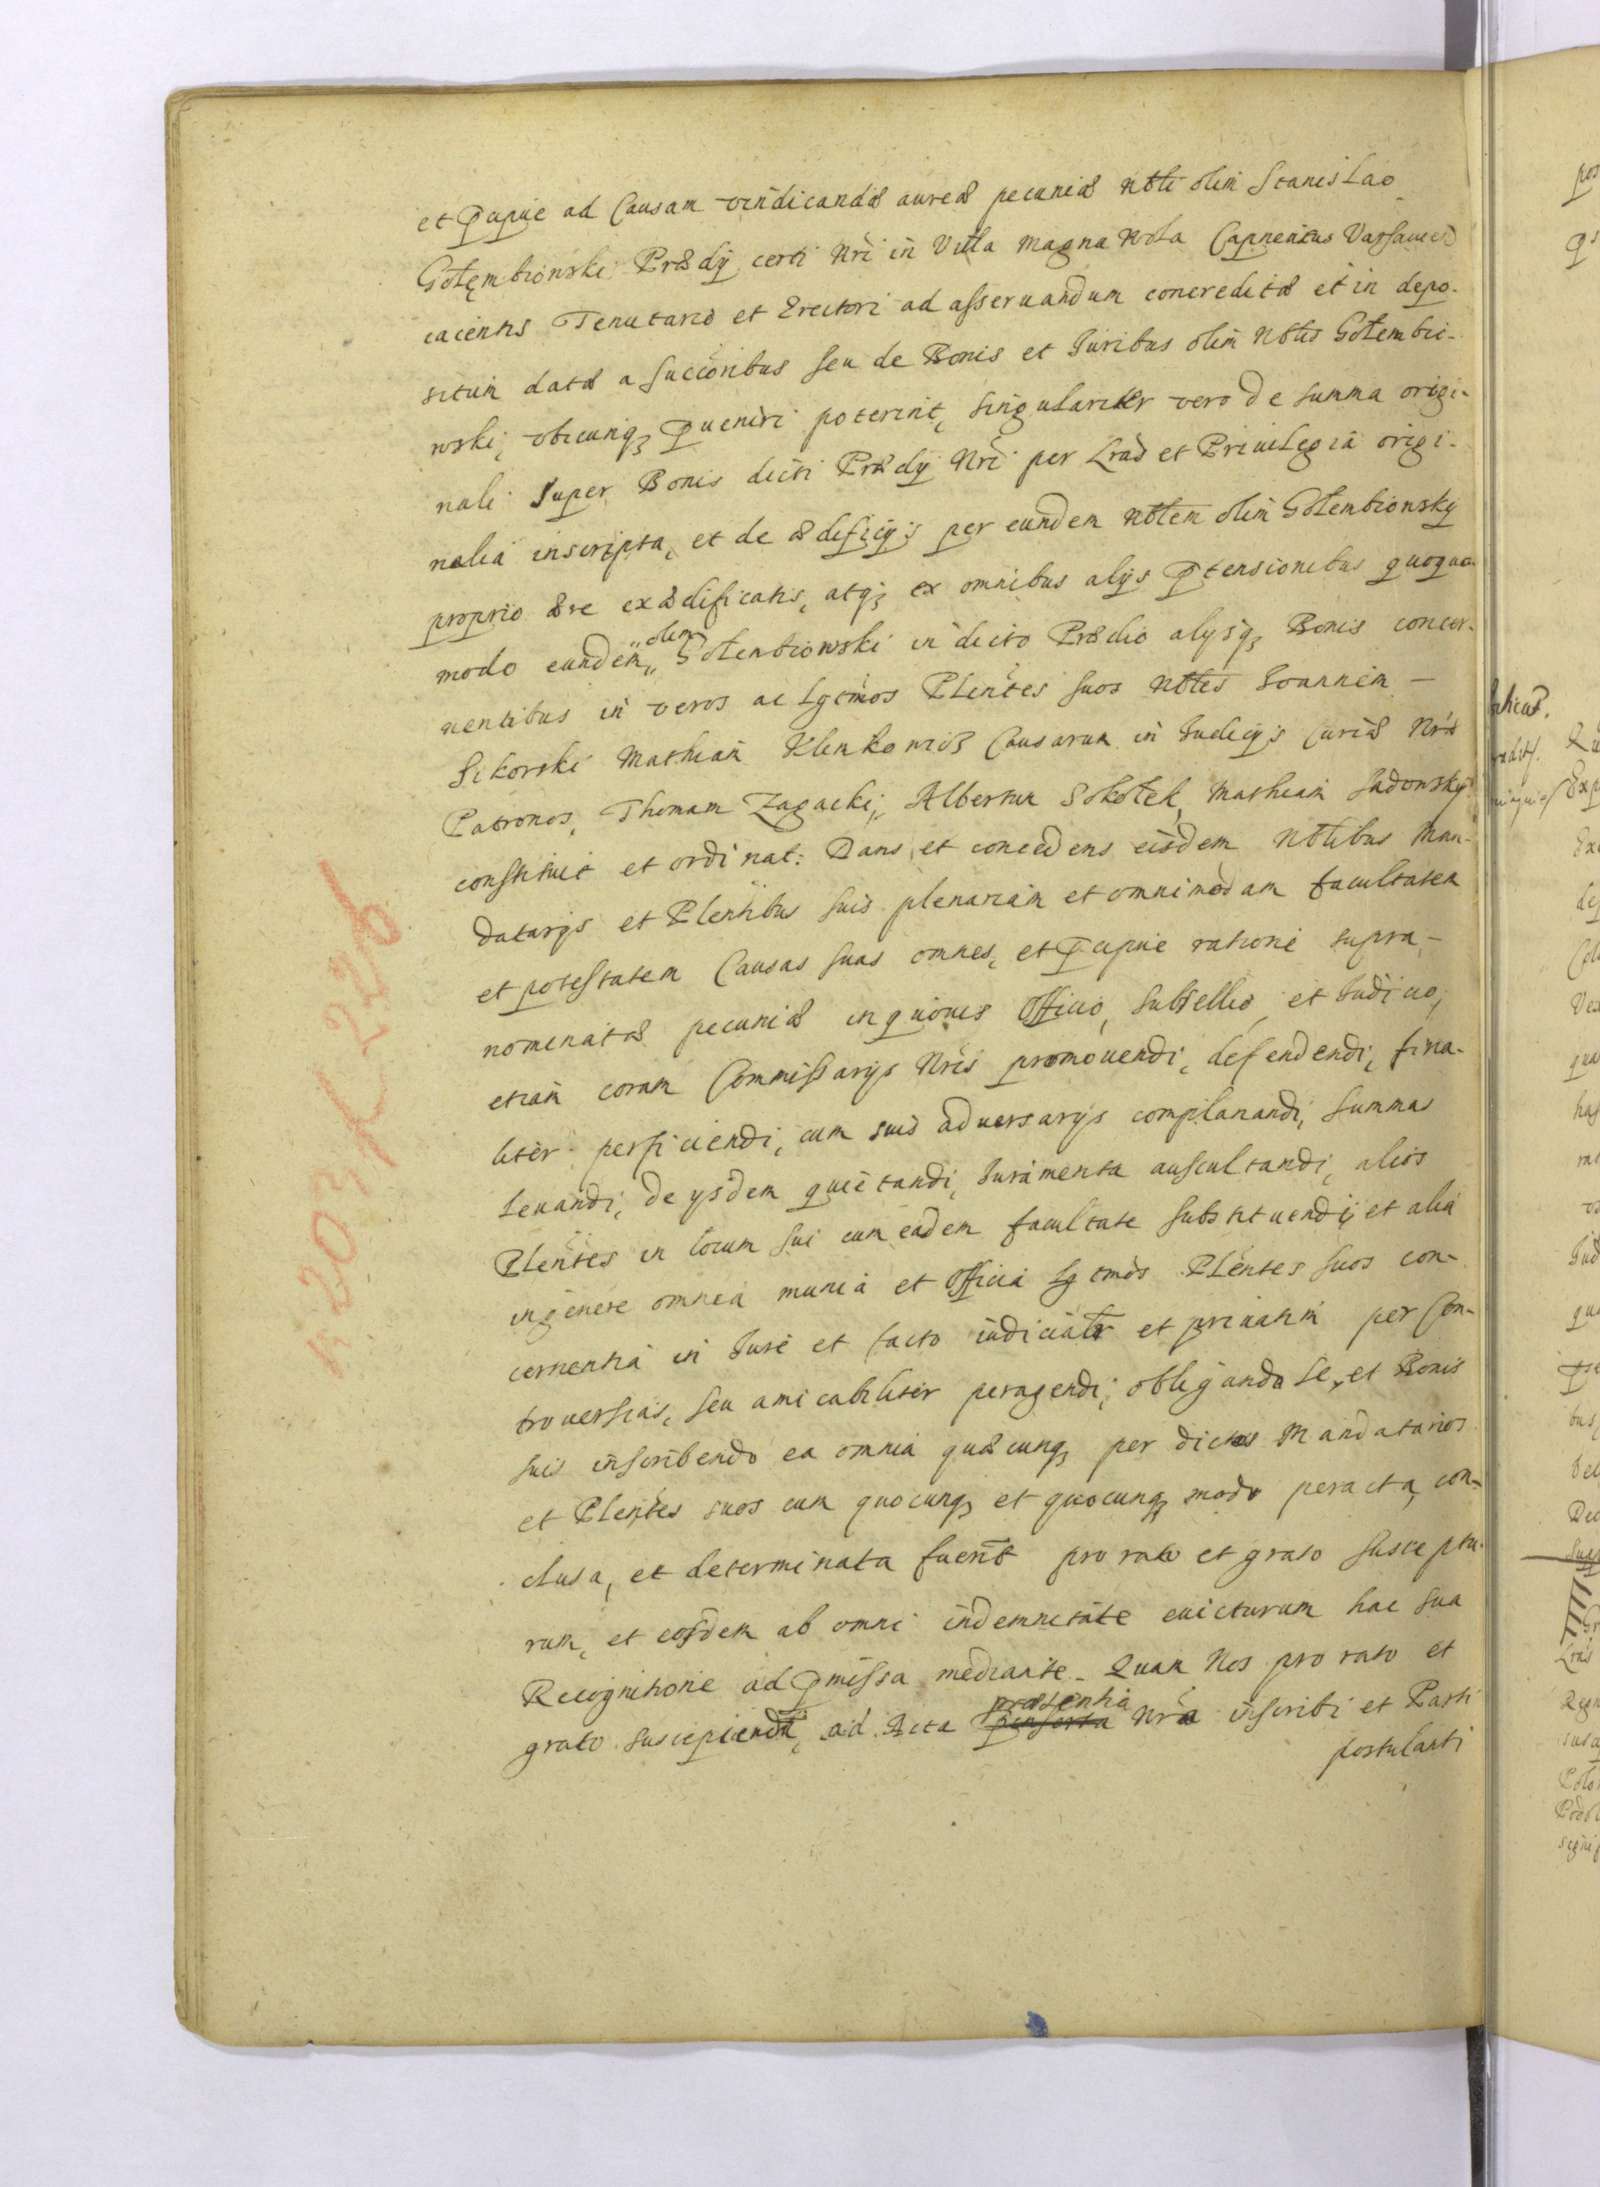 et Pcipue ad Causam vendicandæ aureæ pecuniæ Nbli olim Stanislao
Gołęmbiowski Prædÿ certi Nri in Villa Magna Wola Capneatus
iacentis Tenutario et Erectori ad asseruandum concreditæ et in depo-
situm datæ a succoribus seu de Bonis et Iuribus olim Nblis Gołembio-
wski, vbicunq3 Pueniri poterint, singulariter vero de summa origi-
nali super Bonis dicti Prædÿ Nri per Lras et Priuilegia origi-
nalia inscripta, et de ædificÿs per eundem Nblem olim Gołembiowskÿ
proprio ære exædificatis, atq3 ex omnibus alÿs Ptensionibus quoquo
modo eundem olim Gołembiowski in dicto Prædio alÿsq3 Bonis concer-
nentibus in veros ac Lgtmos Plentes suos Nbles Ioannem —
Sikorski Mathiam Klenkowicz Causarum in Iudicÿs Curiæ Nræ
Patronos, Thomam Zagacki, Albertum Sokołek, Mathiam Sadowskÿ
constituit et ordinat: Dans et concedens eisdem Nblibus Man-
datarÿs et Plentibus suis plenariam et omnimodam facultatem
et potestatem Causas suas omnes, et Pcipue ratione supra-
nominatæ pecuniæ in quouis Officio, subsellio et Iudicio,
etiam coram Commissarÿs Nris promouendi, defendendi, fina-
liter perficiendi, cum suis adversarÿs complanandi, summas
leuandi, de ÿsdem quietandi, Iuramenta auscultandi, alios
Plentes in locum sui cum eadem facultate substituendi, et alia
in genere omnia munia et Officia Lgtmos Plentes suos con-
cernentia in Iure et facto iudicialr et priuatim per Con-
trouersias, seu amicabiliter peragendi, obligando se, et Bonis
suis inscribendo ea omnia quæcunq3 per dictos Mandatarios
et Plentes suos cum quocunq3 et quocunq3 modo peracta, con-
clusa, et determinata fuerint pro rato et grato susceptu-
rum, et eosdem ab omni indemnitate euicturum hac sua
Recognitione ad Pmissa mediante. Quam Nos pro rato et
grato suscipiendã, ad Acta præsentia Nra inscribi et Parti
postulanti